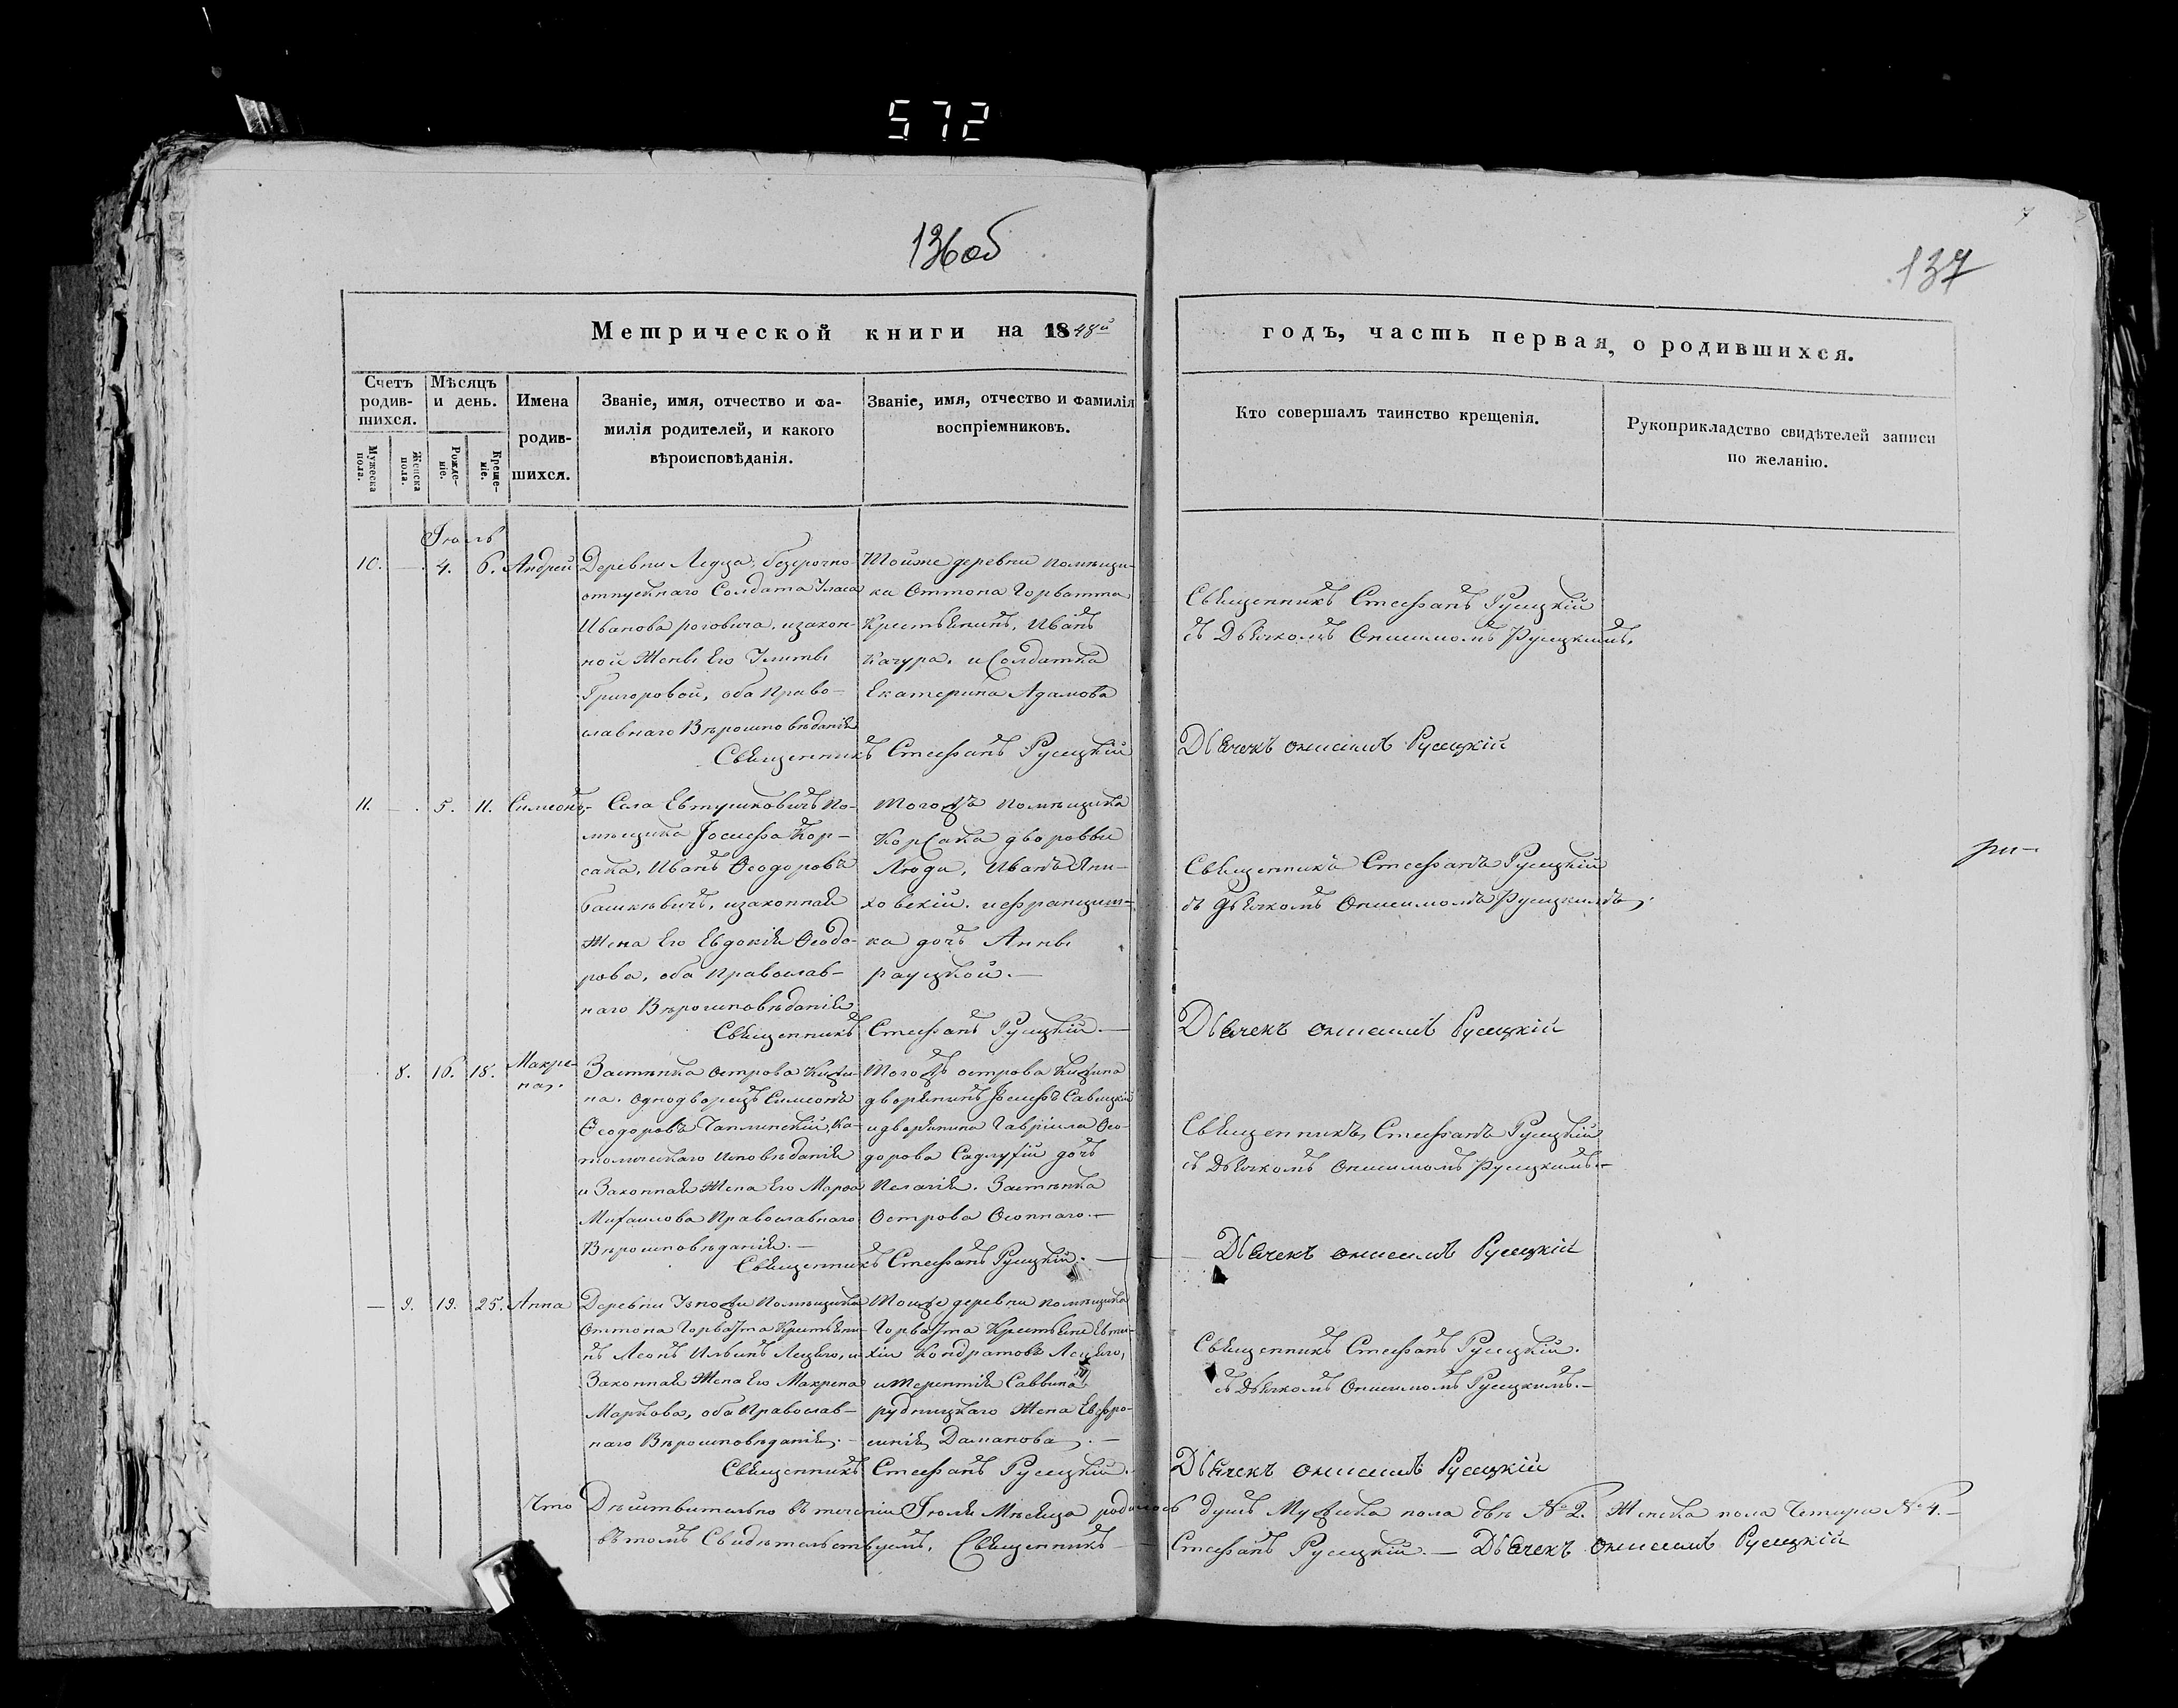 572
136об
137
Метрической книги на 1848й
годъ, часть первая, о родившихся.
Счетъ родив-шихся.
Мужеска пола.
Женска пола.
Мѣсяцъ и день.
Рожде-ніе.
Креще-ніе.
Имена
родив-
шихся.
Званіе, имя, отчество и фа-
милія родителей, и какого
вѣроисповѣданія.
Званіе, имя, отчество и фамилія
воспріемниковъ.
Кто совершалъ таинство крещенія.
Рукоприкладство свидѣтелей записи
по желанію.
Іюль
10. — 4. 6. Андрей
Деревни Ледца, безсрочно-
отпускнаго Солдата Іласа
Иванова роговича, изакон-
ной Жены Его Улиты
Григоровой, оба Право-
славнаго Вѣроисповѣданія
Тойже деревни помѣщи-
ка Оттона Горватта
Крестьянинъ, Иванъ
Качура, и Солдатка
Екатерина Адамова
Священникъ Стефанъ Русецкій
Священникъ Стефанъ Русецкій
съ Дьячкомъ Онисимомъ Русецкимъ.
Дьячекъ онисимъ Русецкій
11. — 5. 11. Симеонъ,
Села Евтушковичъ По-
мѣщика Іосифа Кор-
сака, Иванъ Ѳеодоровъ
изаконная
Жена Его Евдокія Ѳеодо-
рова, оба Православ-
наго Вѣроисповѣданія
Тогожъ помѣщика
Корсака дворовыи
Люди, Иванъ Яни-
ховскій, ифранциш-
ка дочь Анны
рауцкой. —
Священникъ Стефанъ Русецкій —
Священникъ Стефанъ Русецкій
съ дьячкомъ Онисимомъ Русецкимъ,
Дьячекъ онисимъ Русецкій
8. 16. 18. Макре-
на,
Застѣнка острова Кижи-
на, однодворецъ Симеонъ
Ѳеодоровъ Чаплинскій, Ка-
толическаго исповѣданія
и Законная Жена Его Марѳа
Михаилова Православнаго
Вѣроисповѣданія. —
Тогожъ острова Кижина
дворянинъ Іосифъ Савицкій
идворянина Гавріила Ѳео-
дорова дочь
Пелагія. Застѣнка
Острова —
Священникъ Стефанъ Русецкій. —
Священникъ Стефанъ Русецкій
съ Дьячкомъ Онисимомъ Русецкимъ —
Дьячекъ онисимъ Русецкій
— 9. 19. 25. Анна
Деревни помѣщика
Оттона Горватта Крестьяни-
нъ Леонъ Ильинъ Лецко, и
Законная Жена Его Макрена
Маркова, оба Православ-
наго Вѣроисповѣданія. —
Тойже деревни помѣщика
Горватта Крестьяне Евти-
хій Кондратовъ Лецко,
итерентія Саввина
рудницкаго Жена Евфро-
синія Даманова. —
Священникъ Стефанъ Русецкій.
Священникъ Стефанъ Русецкій.
съ Дьячкомъ Онисимомъ Русецкимъ. —
Дьячекъ онисимъ Русецкій
Что Дѣйствительно въ теченіи Іюля Мѣсяца родилось душъ Мужеска пола двѣ №2. Женска пола Четыри №4. —
въ томъ Свидѣтельствуемъ, Священникъ Стефанъ Русецкій. — Дьячекъ Онисимъ Русецкій